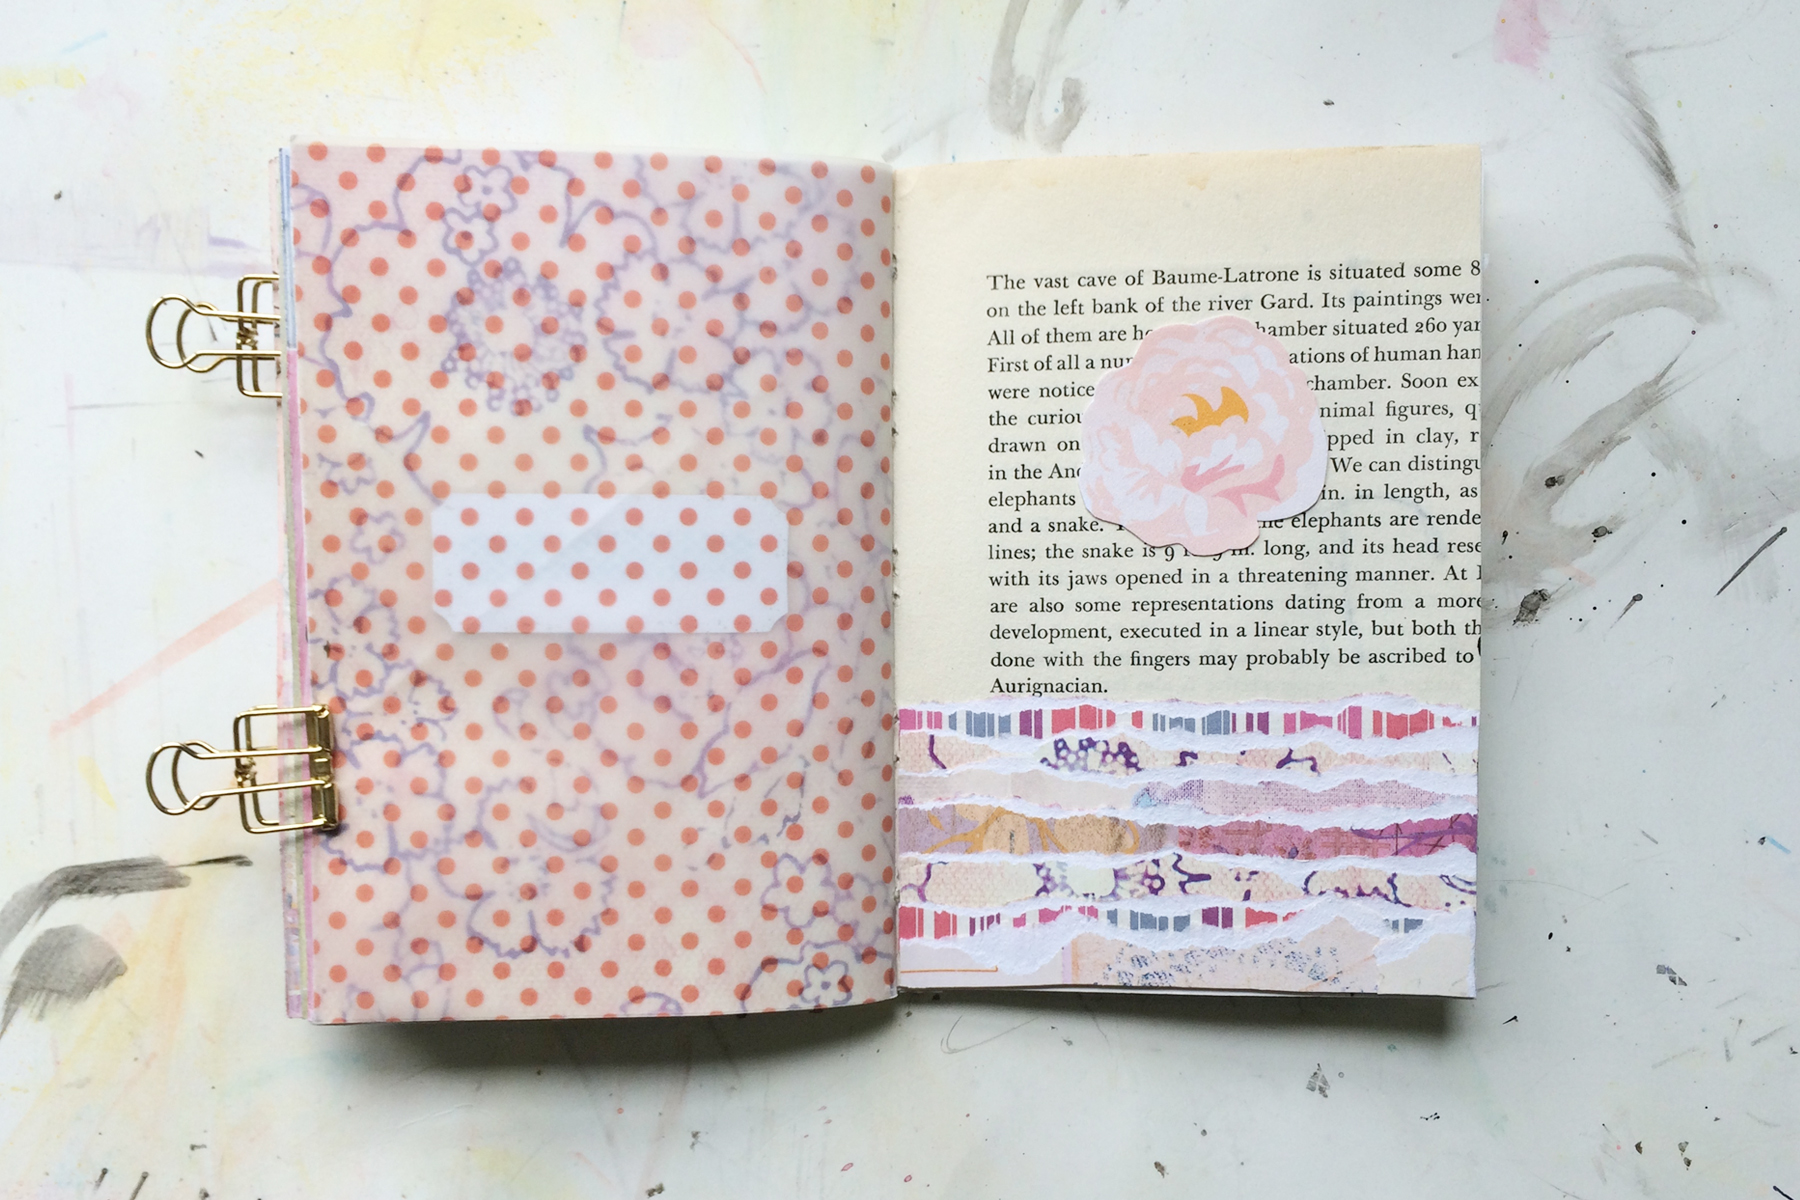 The vast cave of Baume-Latrone is situated some 8
on the left bank of the river Gard. Its paintings wer
All of them are ho hamber situated 260 yar
First of all a nu ations of human han
were notice chamber. Soon ex
the curiou nimal figures, q
drawn on pped in clay, r
in the An We can distingu
elephants in. in length, as
and a snake. elephants are rende
lines; the snake is 9 long, and its head rese
with its jaws opened in a threatening manner. At
are also some representations dating from a more
development, executed in a linear style, but both th
done with the fingers may probably be ascribed to
Aurignacian.